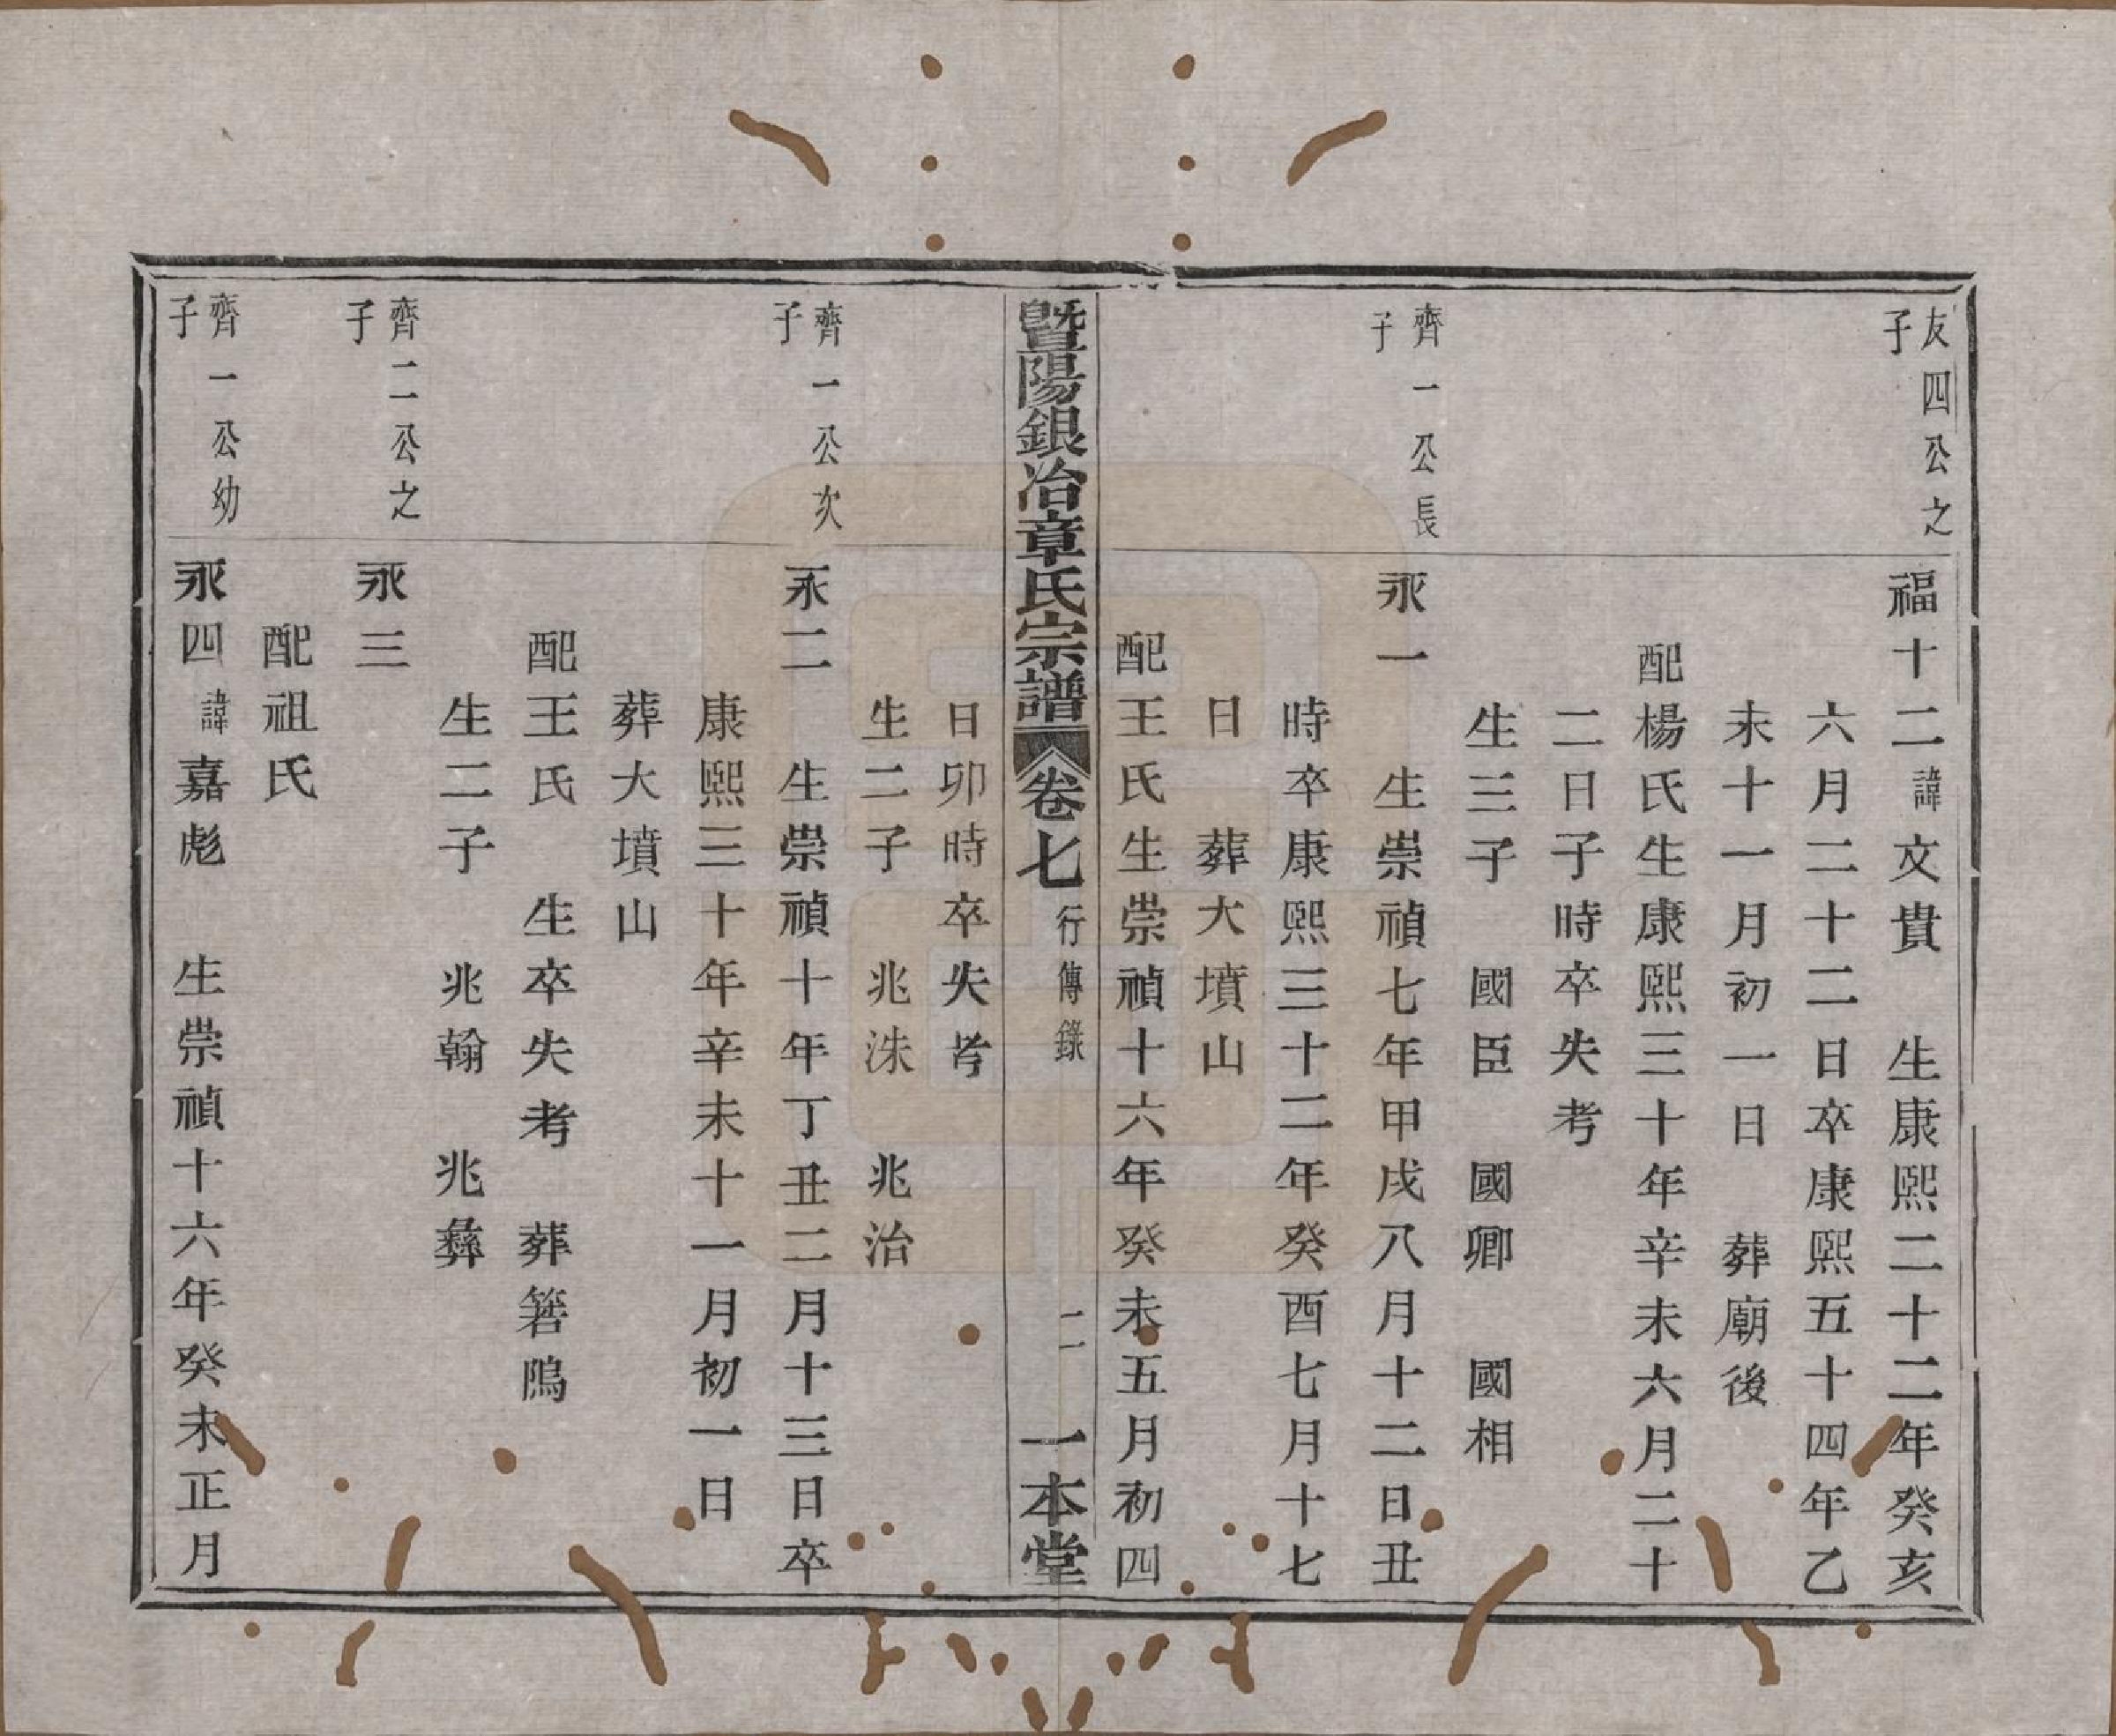 友四公之子
福十二諱文貴　生康熙二十二年癸亥
六月二十二日卒康熙五十四年乙
未十一月初一日　葬廟後
配楊氏生康熙三十年辛未六月二十
二日子時卒失考
生三子　國臣　國卿　國相
齊一公長子
永一　生崇禎七年甲戌八月十二日丑
時卒康熙三十二年癸酉七月十七
日　葬大墳山
配王氏生崇禎十六年癸未五月初四
暨陽銀冶章氏宗譜　卷七　行傳錄　二　一本堂
日卯時卒失考
生二子　兆洙　兆治
齊一公次子
永二　生崇禎十年丁丑二月十三日卒
康熙三十年辛未十一月初一日
葬大墳山
配王氏　生卒失考　葬箬隝
生二子　兆翰　兆彝
齊二公之子
永三
配祖氏
齊一公幼子
永四諱嘉彪　生崇禎十六年癸未正月